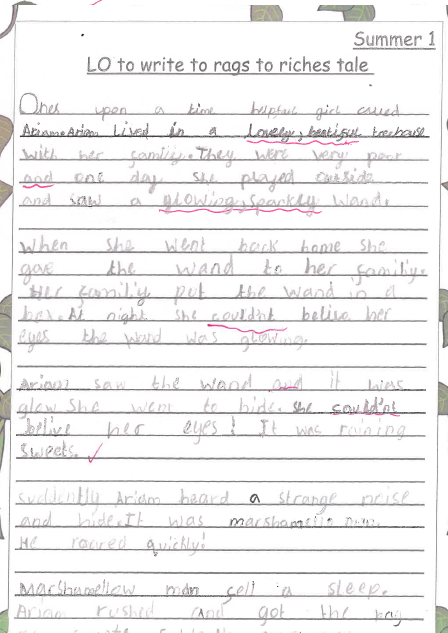 Summer 1
LO to write to rags to riches tale
Ones upon a time helpful girl called
Ariam. Ariam Lived in a lovely, beatiful treehouse
with her familiy. They were very poor
and one day she played outside
and saw a glowing, sparkly wand.
When she went back home she
gave the wand to her familiy.
Her familiy put the wand in a
box. At night she couldnt belive her
eyes the wand was glowing.
Ariam saw the wand and it was
glow. She went to hide. She could'nt
belive her eyes! It was raining
sweets.
suddently Ariam heard a strange noise
and hide. It was marshamello man.
He roared quickly!
Marshamellow man fell a sleep.
Ariam rushed and got the bag